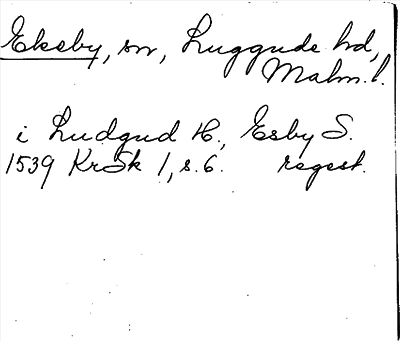 Ekeby, sn, Luggude hd,
Malm.l.
i Ludgud H., Eeby S.
1539 KrSk 1, s. 6. regest.